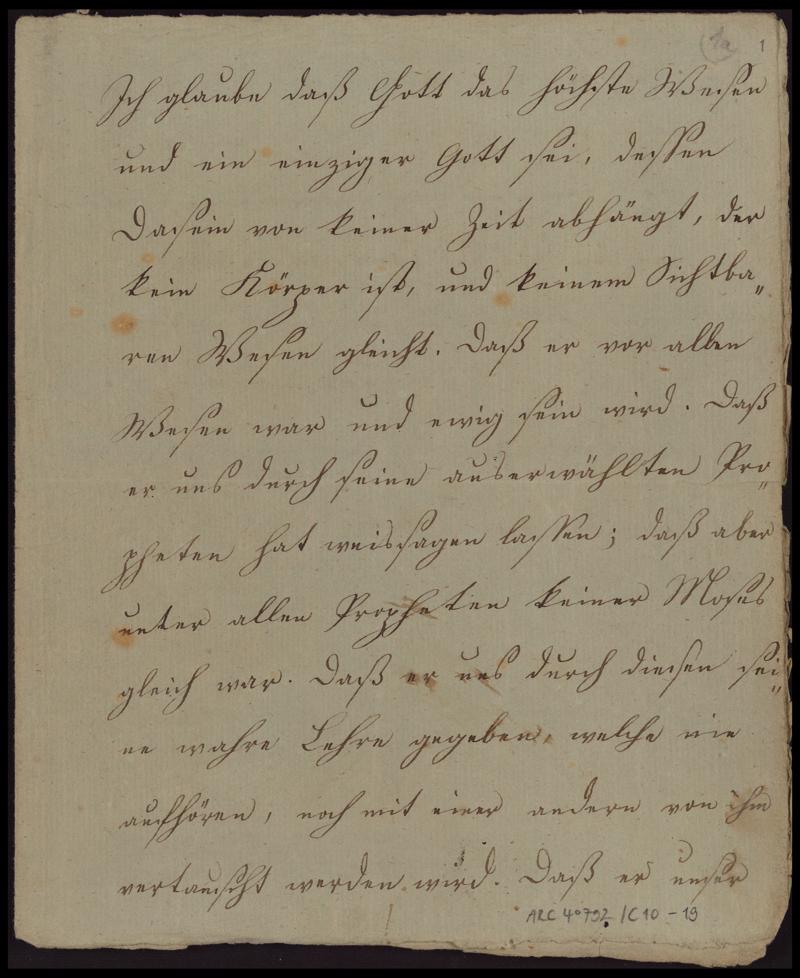 1a 1
Ich glaube daß Gott das höchste Wesen
und ein einziger Gott sei, dessen
Dasein von keiner Zeit abhängt, der
kein Körper ist, und keinem Sichtba„
ren Wesen gleicht. Daß er vor allen
Wesen war und ewig sein wird. Daß
er uns durch seine auserwählten Pro„
pheten hat weissagen lassen; daß aber
unter allen Propheten keiner Moses
gleich war. Daß er uns durch diesen sei„
ne wahre Lehre gegeben, welche nie
aufhören, noch mit einer andern von ihm
vertauscht werden wird. Daß er unser
ARC 4° 792 / C10 - 19